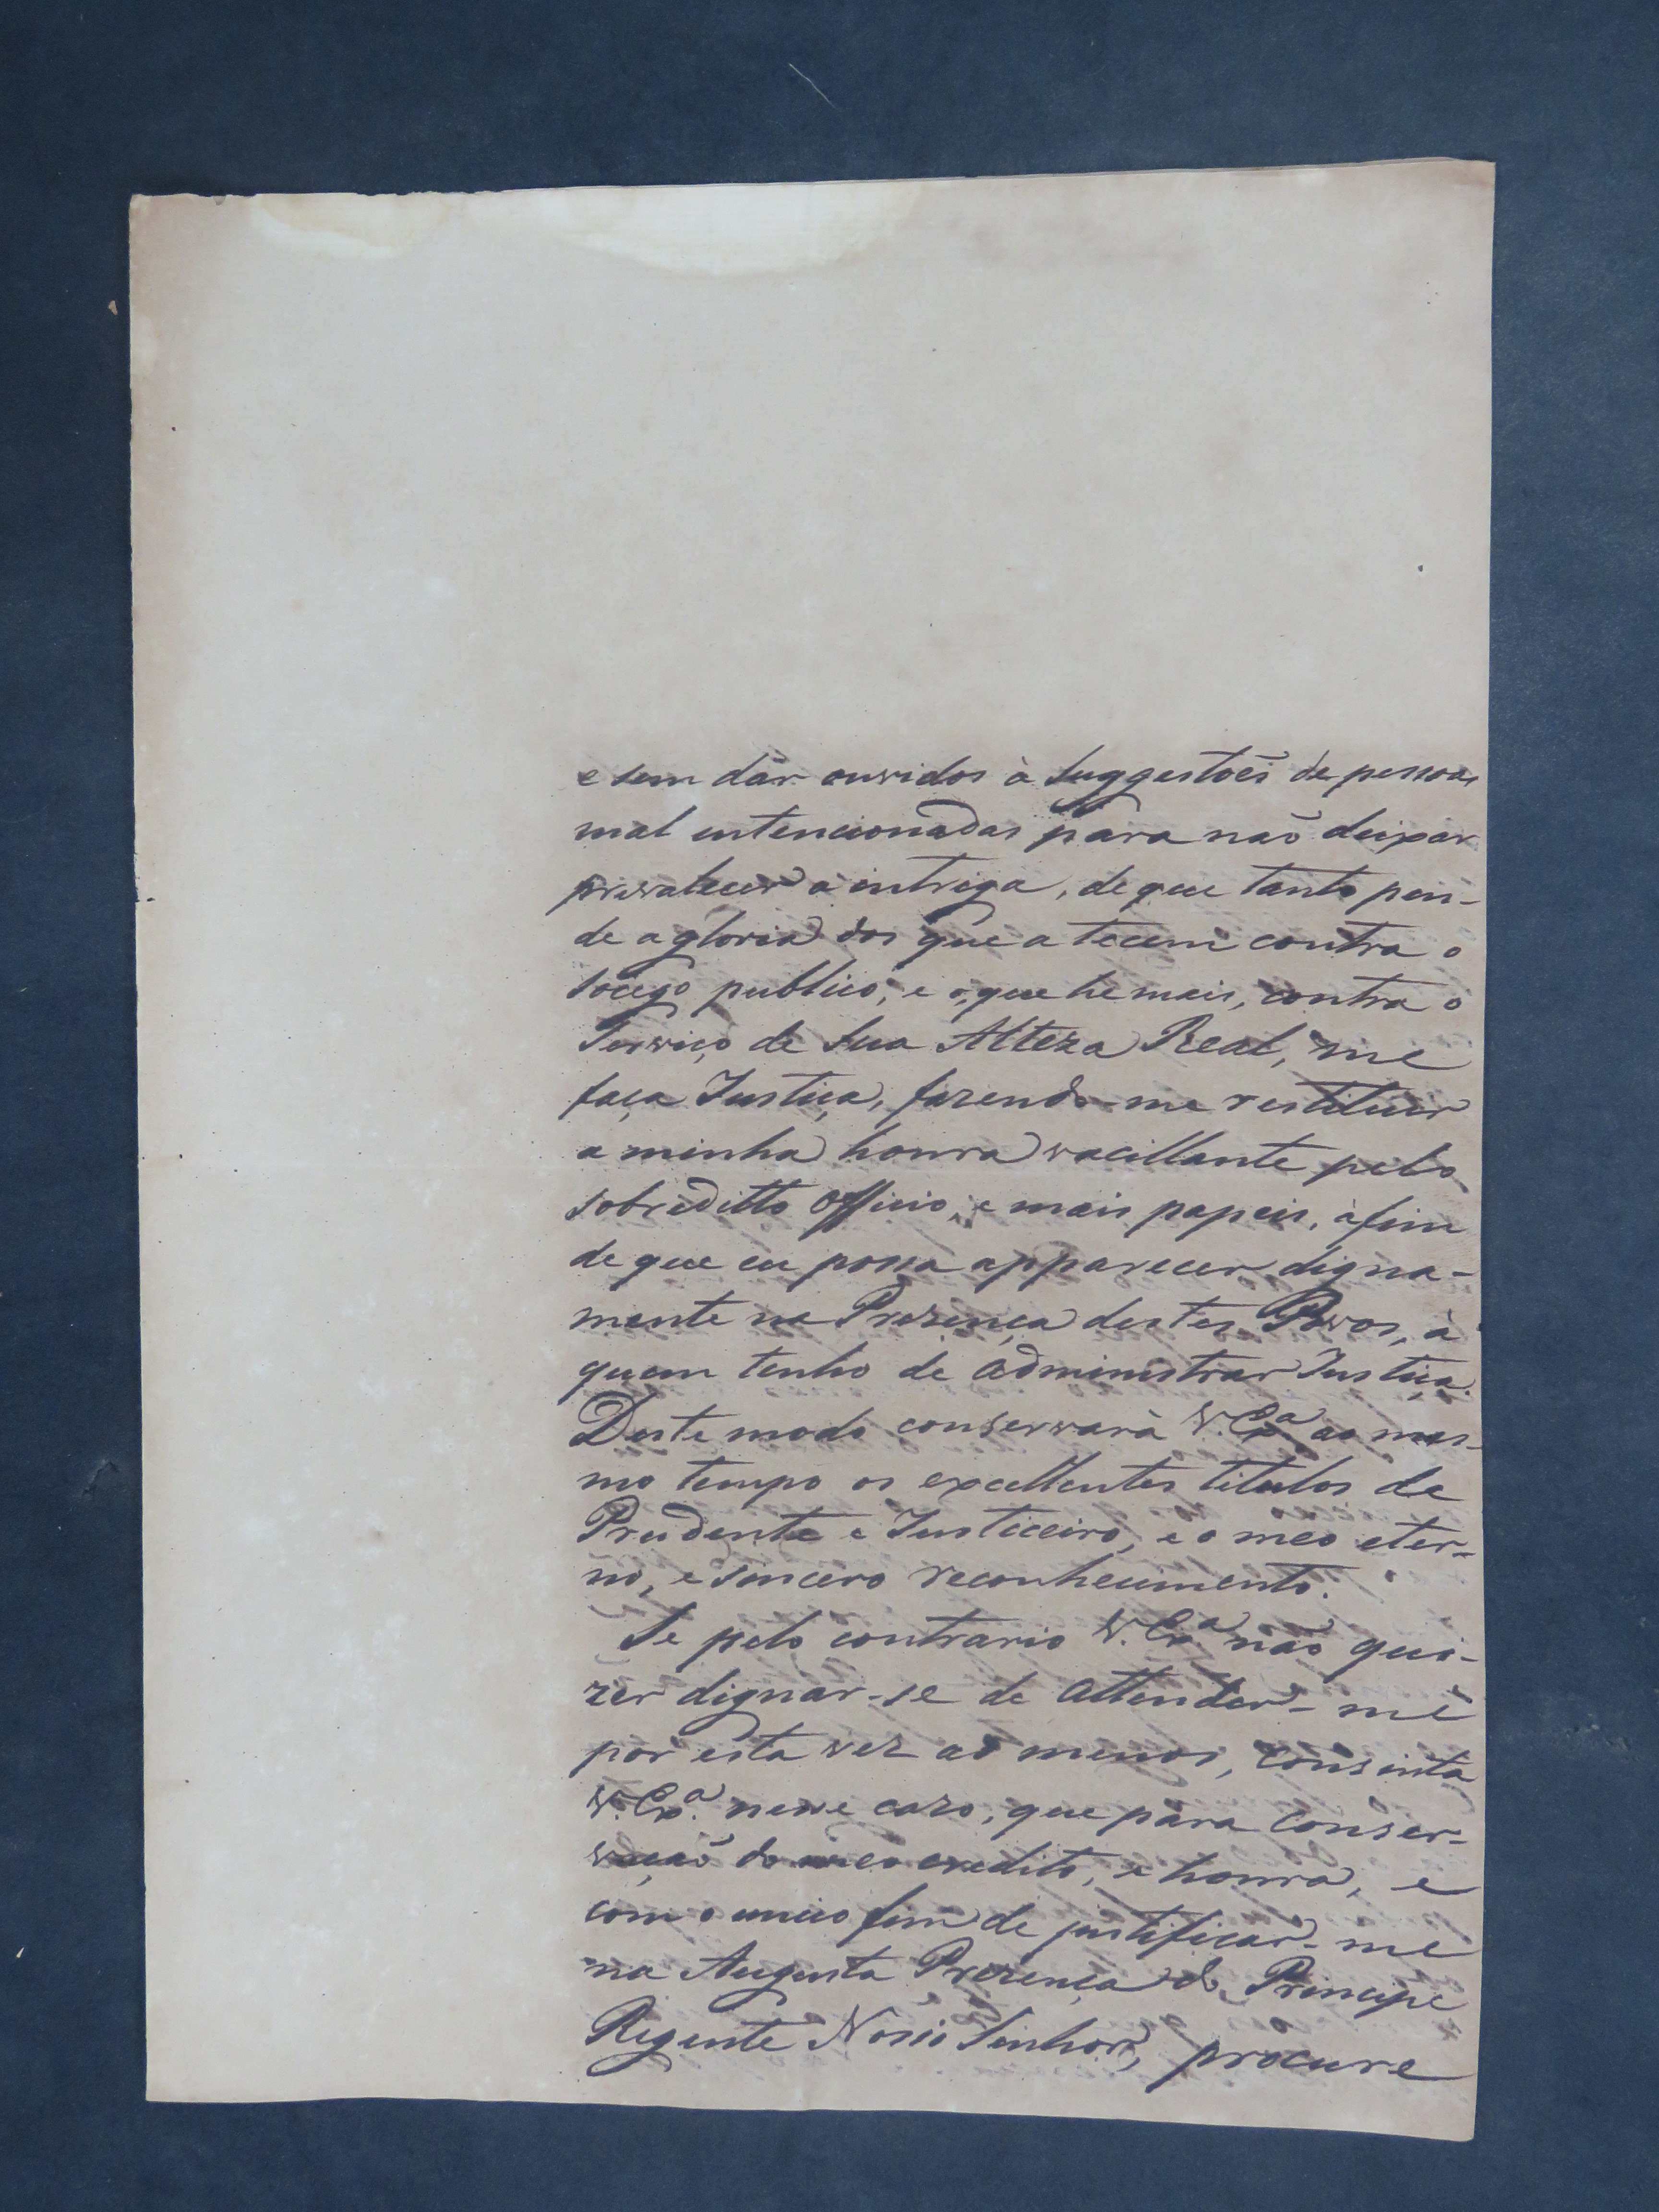 e sem dár ouvidos à Suggestoẽs de pessoas
mal intencionadas para naõ deixar
prevalecer a intriga, de que tanto pen-
de a gloria dos que a tecem contra o
Socego publico, e o que he mais, contra o
Serviço de Sua Alteza Real, me
faça Justiça, fazendo-me restituir
a minha honra vacillante pelo
sobreditto Officio, e mais papeis, àfim
de que eu possa apparecer digna-
mente na Prezença destes Povos, à
quem tenho de administrar Justiça.
Deste modo conservarà V. Exª ao mes-
mo tempo os excellentes titulos de
Prudente e Justiceiro, e o meo eter-
no, e sincero reconhecimento.
Se pelo contrario V. Exª naõ qui-
zer dignar-se de attender-me
por esta vez ao menos, consinta
V. Exª. nesse cazo, que para conser-
vaçaõ do meo credito, e honra, e
com o unico fim de justificar-me
na Augusta Prezença do Principe
Regente Nosso Senhor, procure